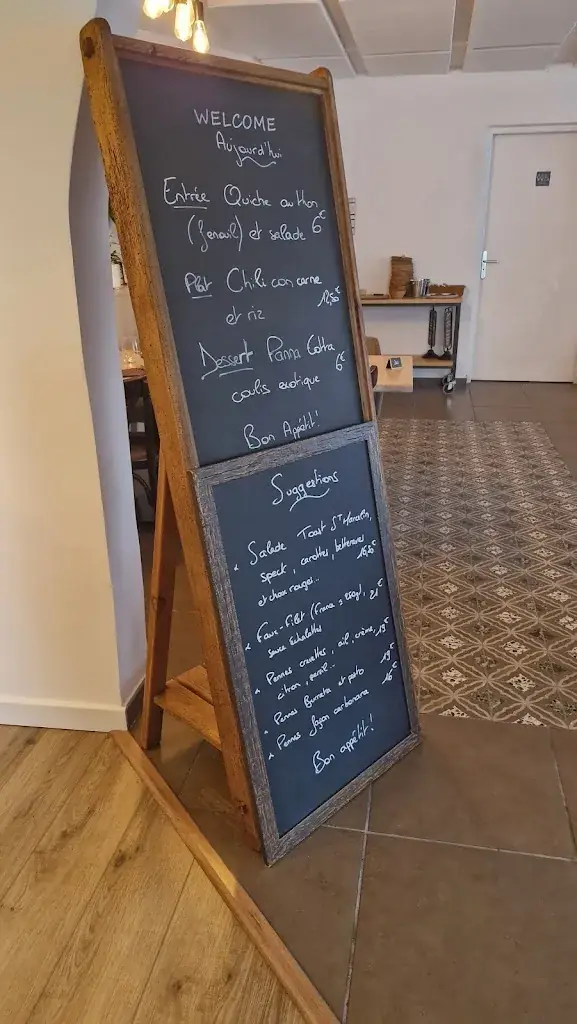 WELCOME
Aujourd'hui
Entrée Quiche au thon
(fenouil) et salade 6€
Plat Chili con carne
et riz 12,50€
Dessert Panna Cotta
coulis exotique 6€
Bon Appétit!
Suggestions
Salade Toast St Marcelin,
speck, carottes, betteraves
et choux rouges...
Faux-Filet (France ≈ 250g), 21€
sauce échalottes
Pennes crevettes, ail, crème, 19€
citron, persil...
Pennes Burrata et pesto 19€
Pennes façon carbonara 16€
Bon appétit!